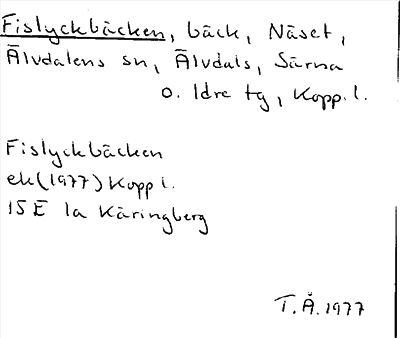 Fislyckbäcken, bäck, Näset,
Älvdalens sn, Älvdals, Särna
o. Idre tg, Kopp. l.
Fislyckbäcken
ek (1977) Kopp l.
15 E 1a Käringberg
T. Å. 1977